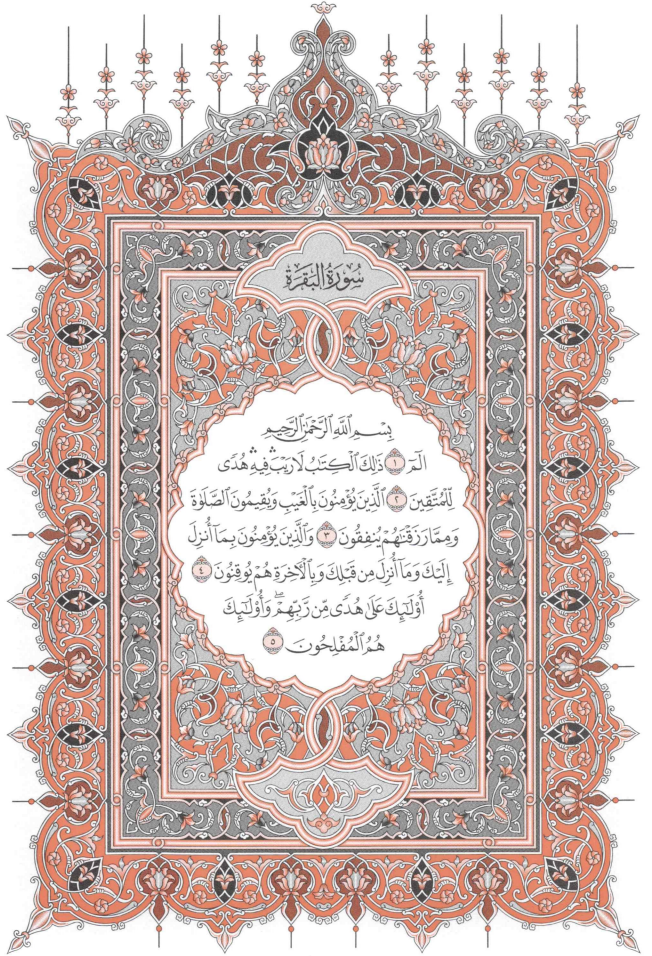 سُورَةُ البَقَرَةِ
بِسْمِ ٱللَّهِ ٱلرَّحْمَٰنِ ٱلرَّحِيمِ
الٓمٓ ١ ذَٰلِكَ ٱلْكِتَٰبُ لَا رَيْبَۛ فِيهِۛ هُدًى
لِّلْمُتَّقِينَ ٢ ٱلَّذِينَ يُؤْمِنُونَ بِٱلْغَيْبِ وَيُقِيمُونَ ٱلصَّلَوٰةَ
وَمِمَّا رَزَقْنَٰهُمْ يُنفِقُونَ ٣ وَٱلَّذِينَ يُؤْمِنُونَ بِمَآ أُنزِلَ
إِلَيْكَ وَمَآ أُنزِلَ مِن قَبْلِكَ وَبِٱلْأٓخِرَةِ هُمْ يُوقِنُونَ ٤
أُو۟لَٰٓئِكَ عَلَىٰ هُدًى مِّن رَّبِّهِمْۖ وَأُو۟لَٰٓئِكَ
هُمُ ٱلْمُفْلِحُونَ ٥